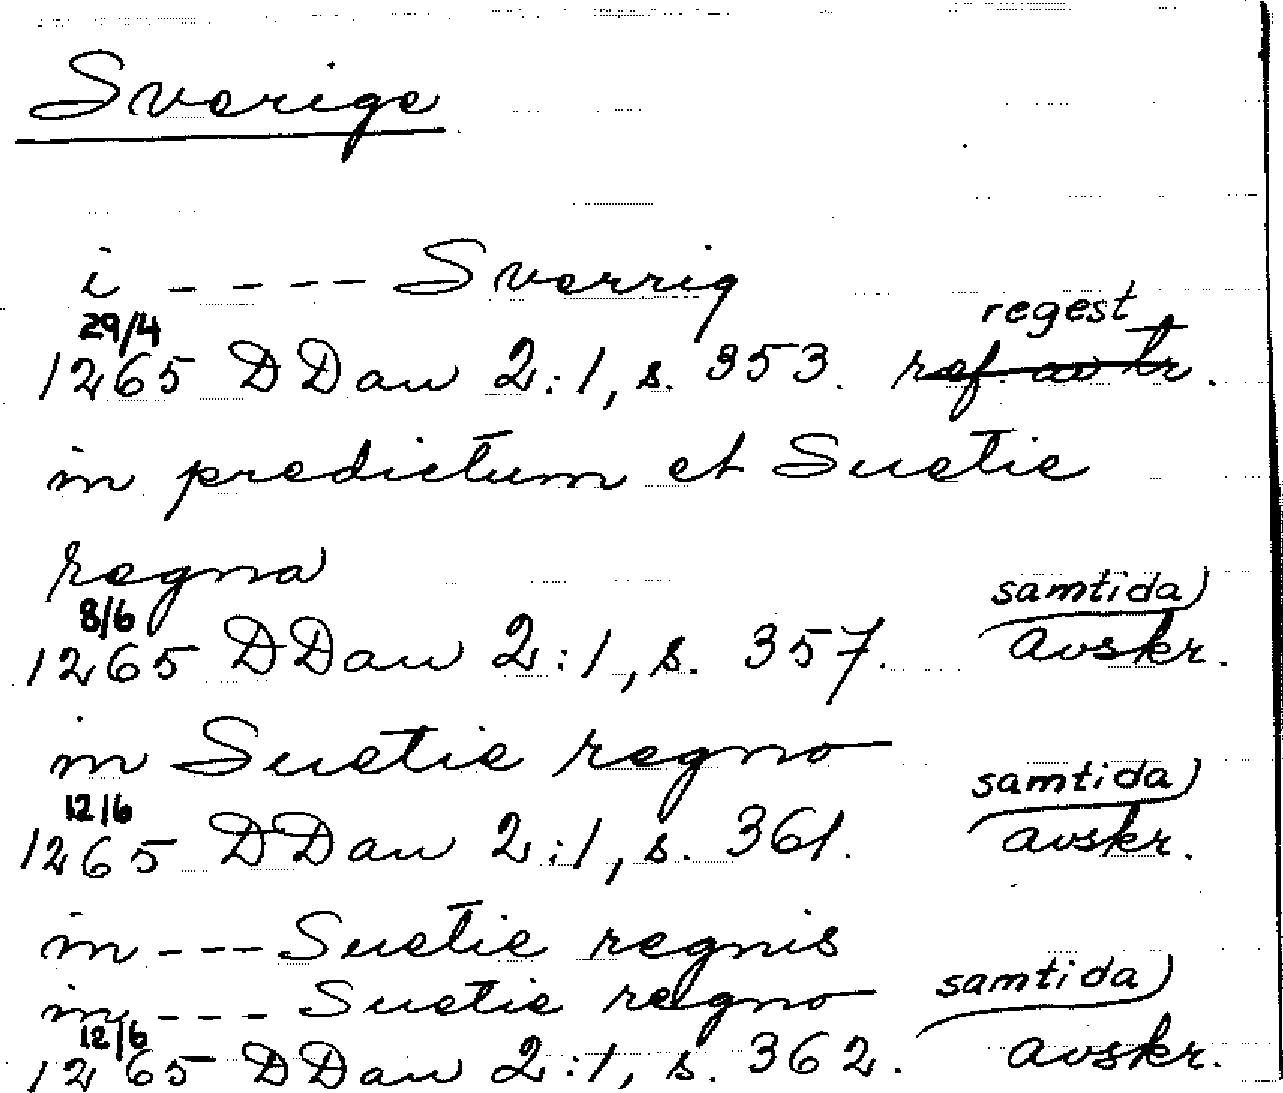 Sverige
i - - - - Sverrig
29/4 regest
1265 DDan 2:1, s. 353. ref. av tr.
in predictum et Suetie
regna
8/6 samtida
1265 DDan 2:1, s. 357. avskr.
in Suetie regno
12/6 samtida
1265 DDan 2:1, s. 361. avskr.
in - - - Suetie regnis
in - - - Suetie regno samtida
12/6
1265 DDan 2:1, s. 362. avskr.